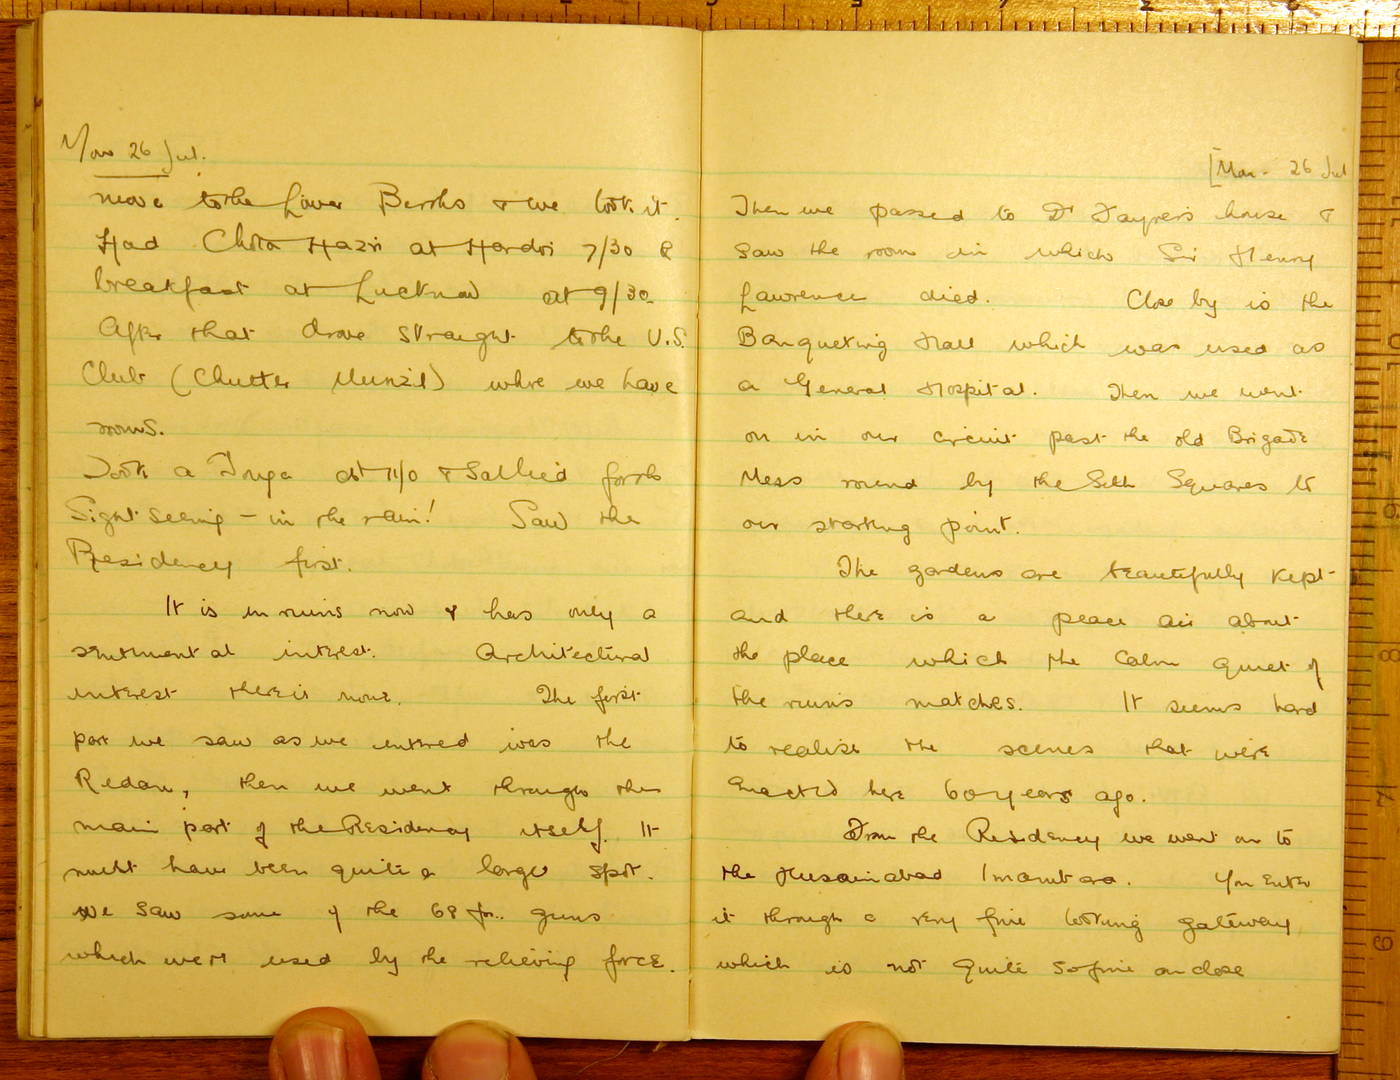 Mon 26 Jul.
move to the Lower Berths & we took it.
Had Chota Hazri at Hardoi 7/30 &
breakfast at Lucknow at 9/30.
After that drove straight to the U.S.
Club (Chutter Munzil) where we have
rooms.
Took a Tonga at 11/0 & Sallied forth
Sight seeing – in the rain! Saw the
Residency first.
It is in ruins now & has only a
sentimental interest. Architectural
interest there is none. The first
part we saw as we entered was the
Redan, then we went through the
main part of the Residency itself. It
must have been quite a large spot.
We saw some of the 68 pr. guns
which were used by the relieving force.
[Mon. 26 Jul
Then we passed to Dr Fayrer's house &
saw the room in which Sir Henry
Lawrence died. Close by is the
Banqueting Hall which was used as
a General Hospital. Then we went
on in our circuit past the old Brigade
Mess round by the Sikh Squares to
our starting point.
The gardens are beautifully kept
and there is a peace air about
the place which the calm quiet of
the ruins matches. It seems hard
to realise the scenes that were
enacted here 60 years ago.
From the Residency we went on to
the Husainabad Imambara. You enter
it through a very fine looking gateway
which is not quite so fine on close